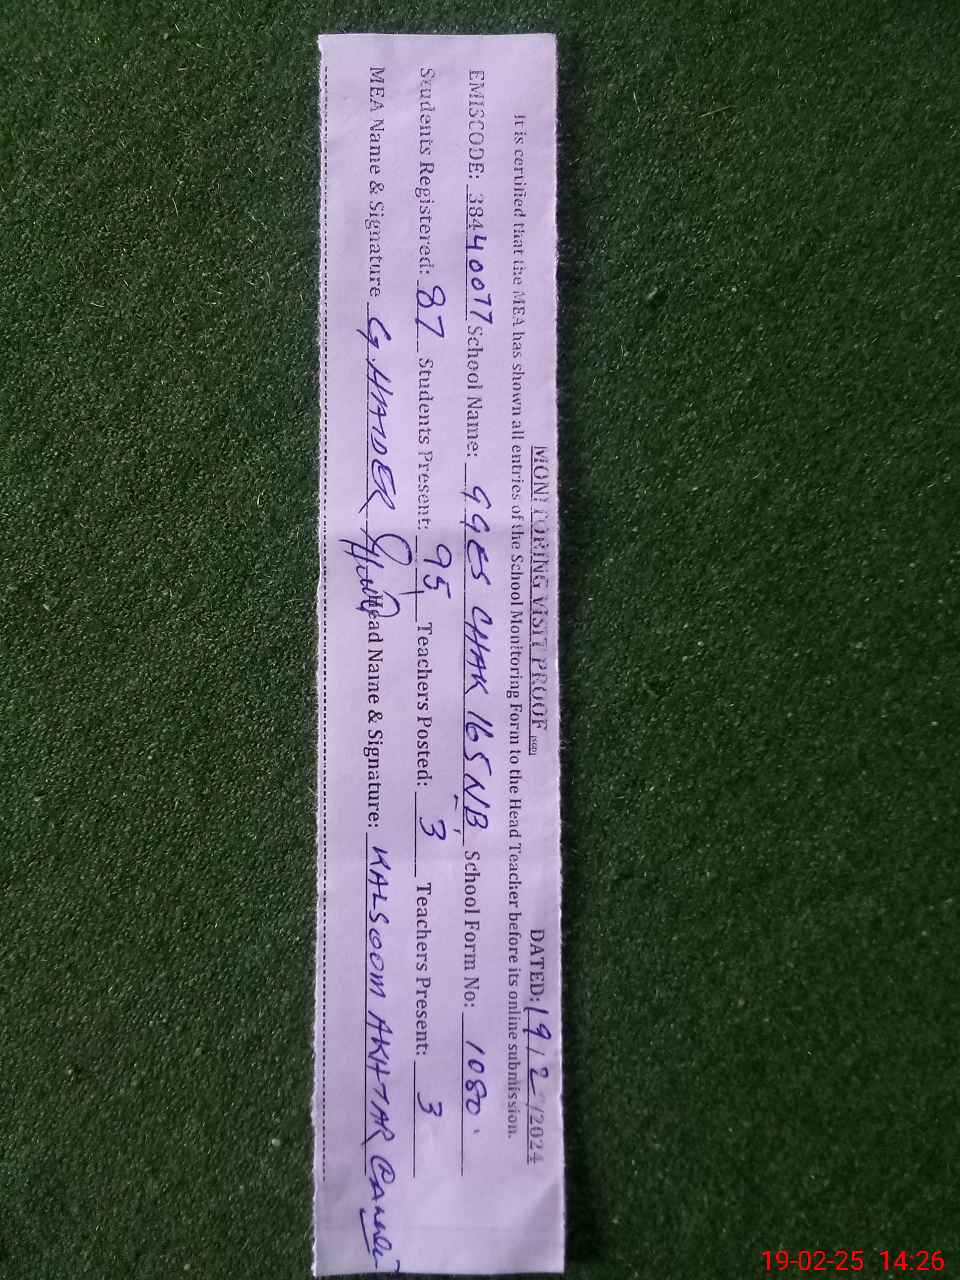 MONITORING VISIT PROOF DATED: 19/2/2024
It is certified that the MEA has shown all entries of the School Monitoring Form to the Head Teacher before its online submission.
EMISCODE: 38440077 School Name: GGES CHAK 165 NB School Form No: 1080
Students Registered: 87 Students Present: 95 Teachers Posted: 3 Teachers Present: 3
MEA Name & Signature G. HAIDER Head Name & Signature: KALSOOM AKHTAR
19-02-25 14:26